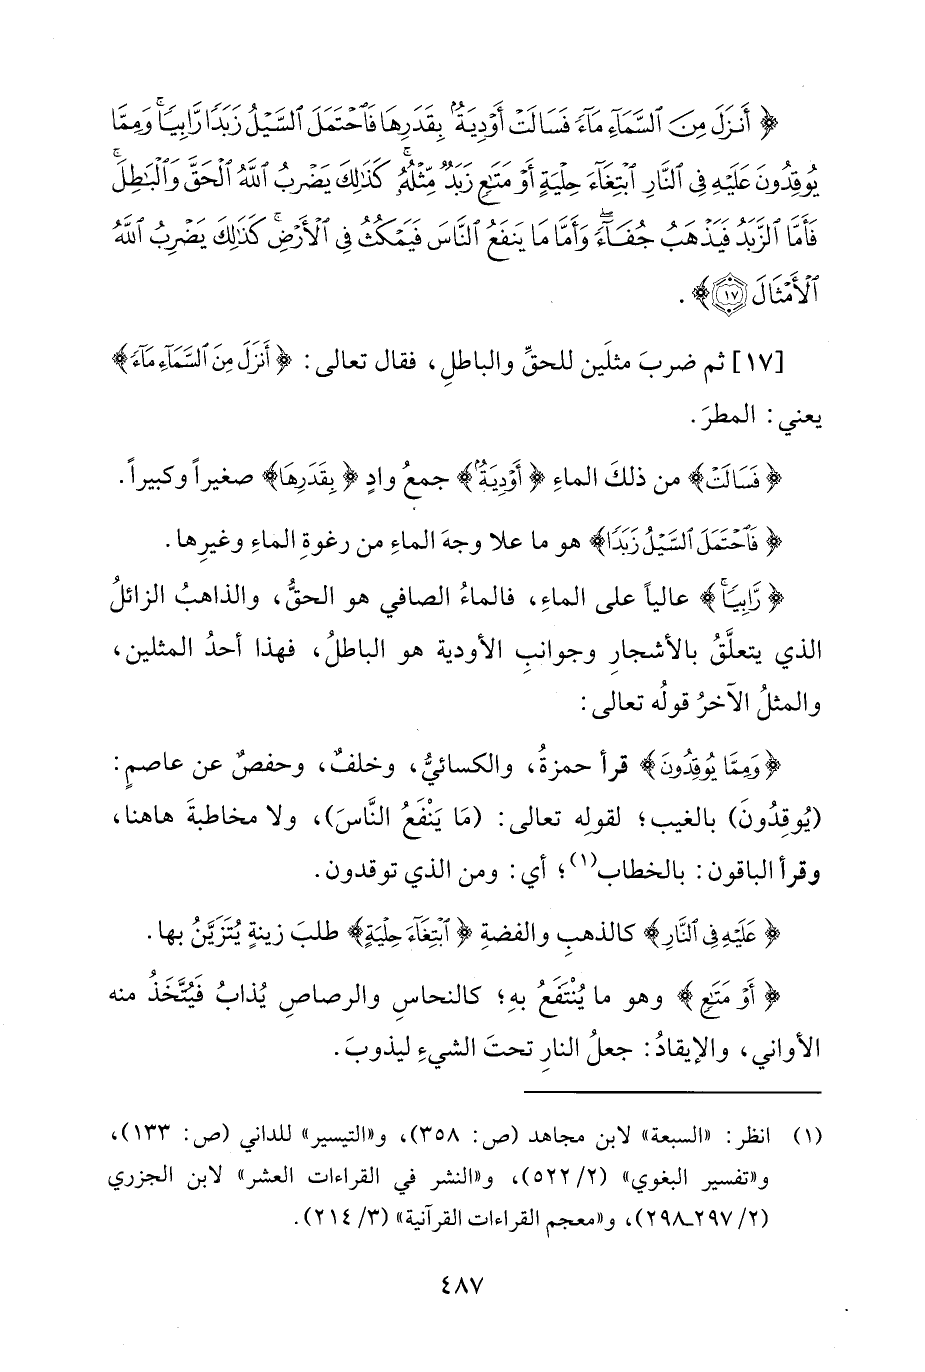 ﴿ أَنزَلَ مِنَ ٱلسَّمَآءِ مَآءً فَسَالَتْ أَوْدِيَةٌۢ بِقَدَرِهَا فَٱحْتَمَلَ ٱلسَّيْلُ زَبَدًا رَّابِيًا ۚ وَمِمَّا
يُوقِدُونَ عَلَيْهِ فِى ٱلنَّارِ ٱبْتِغَآءَ حِلْيَةٍ أَوْ مَتَٰعٍ زَبَدٌ مِّثْلُهُۥ ۚ كَذَٰلِكَ يَضْرِبُ ٱللَّهُ ٱلْحَقَّ وَٱلْبَٰطِلَ ۚ
فَأَمَّا ٱلزَّبَدُ فَيَذْهَبُ جُفَآءً ۖ وَأَمَّا مَا يَنفَعُ ٱلنَّاسَ فَيَمْكُثُ فِى ٱلْأَرْضِ ۚ كَذَٰلِكَ يَضْرِبُ ٱللَّهُ
ٱلْأَمْثَالَ ١٧﴾ .
[١٧] ثم ضربَ مثلَين للحقِّ والباطلِ، فقال تعالى: ﴿ أَنزَلَ مِنَ ٱلسَّمَآءِ مَآءً ﴾
يعني: المطرَ.
﴿ فَسَالَتْ﴾ من ذلكَ الماءِ ﴿ أَوْدِيَةٌۢ ﴾ جمعُ وادٍ ﴿ بِقَدَرِهَا﴾ صغيراً وكبيراً.
﴿ فَٱحْتَمَلَ ٱلسَّيْلُ زَبَدًا﴾ هو ما علا وجهَ الماءِ من رغوةِ الماءِ وغيرِها.
﴿ رَّابِيًا ۚ ﴾ عالياً على الماءِ، فالماءُ الصافي هو الحقُّ، والذاهبُ الزائلُ
الذي يتعلَّقُ بالأشجارِ وجوانبِ الأودية هو الباطلُ، فهذا أحدُ المثلين،
والمثلُ الآخرُ قولُه تعالى:
﴿ وَمِمَّا يُوقِدُونَ ﴾ قرأ حمزةُ، والكسائيُّ، وخلفٌ، وحفصٌ عن عاصمٍ:
(يُوقِدُونَ) بالغيب؛ لقولِه تعالى: (مَا يَنْفَعُ النَّاسَ)، ولا مخاطبةَ هاهنا،
وقرأ الباقون: بالخطاب(١)؛ أي: ومن الذي توقدون.
﴿ عَلَيْهِ فِى ٱلنَّارِ ﴾ كالذهبِ والفضةِ ﴿ ٱبْتِغَآءَ حِلْيَةٍ ﴾ طلبَ زينةٍ يُتَزَيَّنُ بها.
﴿ أَوْ مَتَٰعٍ ﴾ وهو ما يُنْتَفَعُ بهِ؛ كالنحاسِ والرصاصِ يُذابُ فَيُتَّخَذُ منه
الأواني، والإيقادُ: جعلُ النارِ تحتَ الشيءِ ليذوبَ.
(١) انظر: «السبعة» لابن مجاهد (ص: ٣٥٨)، و«التيسير» للداني (ص: ١٣٣)،
و«تفسير البغوي» (٢/ ٥٢٢)، و«النشر في القراءات العشر» لابن الجزري
(٢/ ٢٩٧ـ٢٩٨)، و«معجم القراءات القرآنية» (٣/ ٢١٤).
٤٨٧